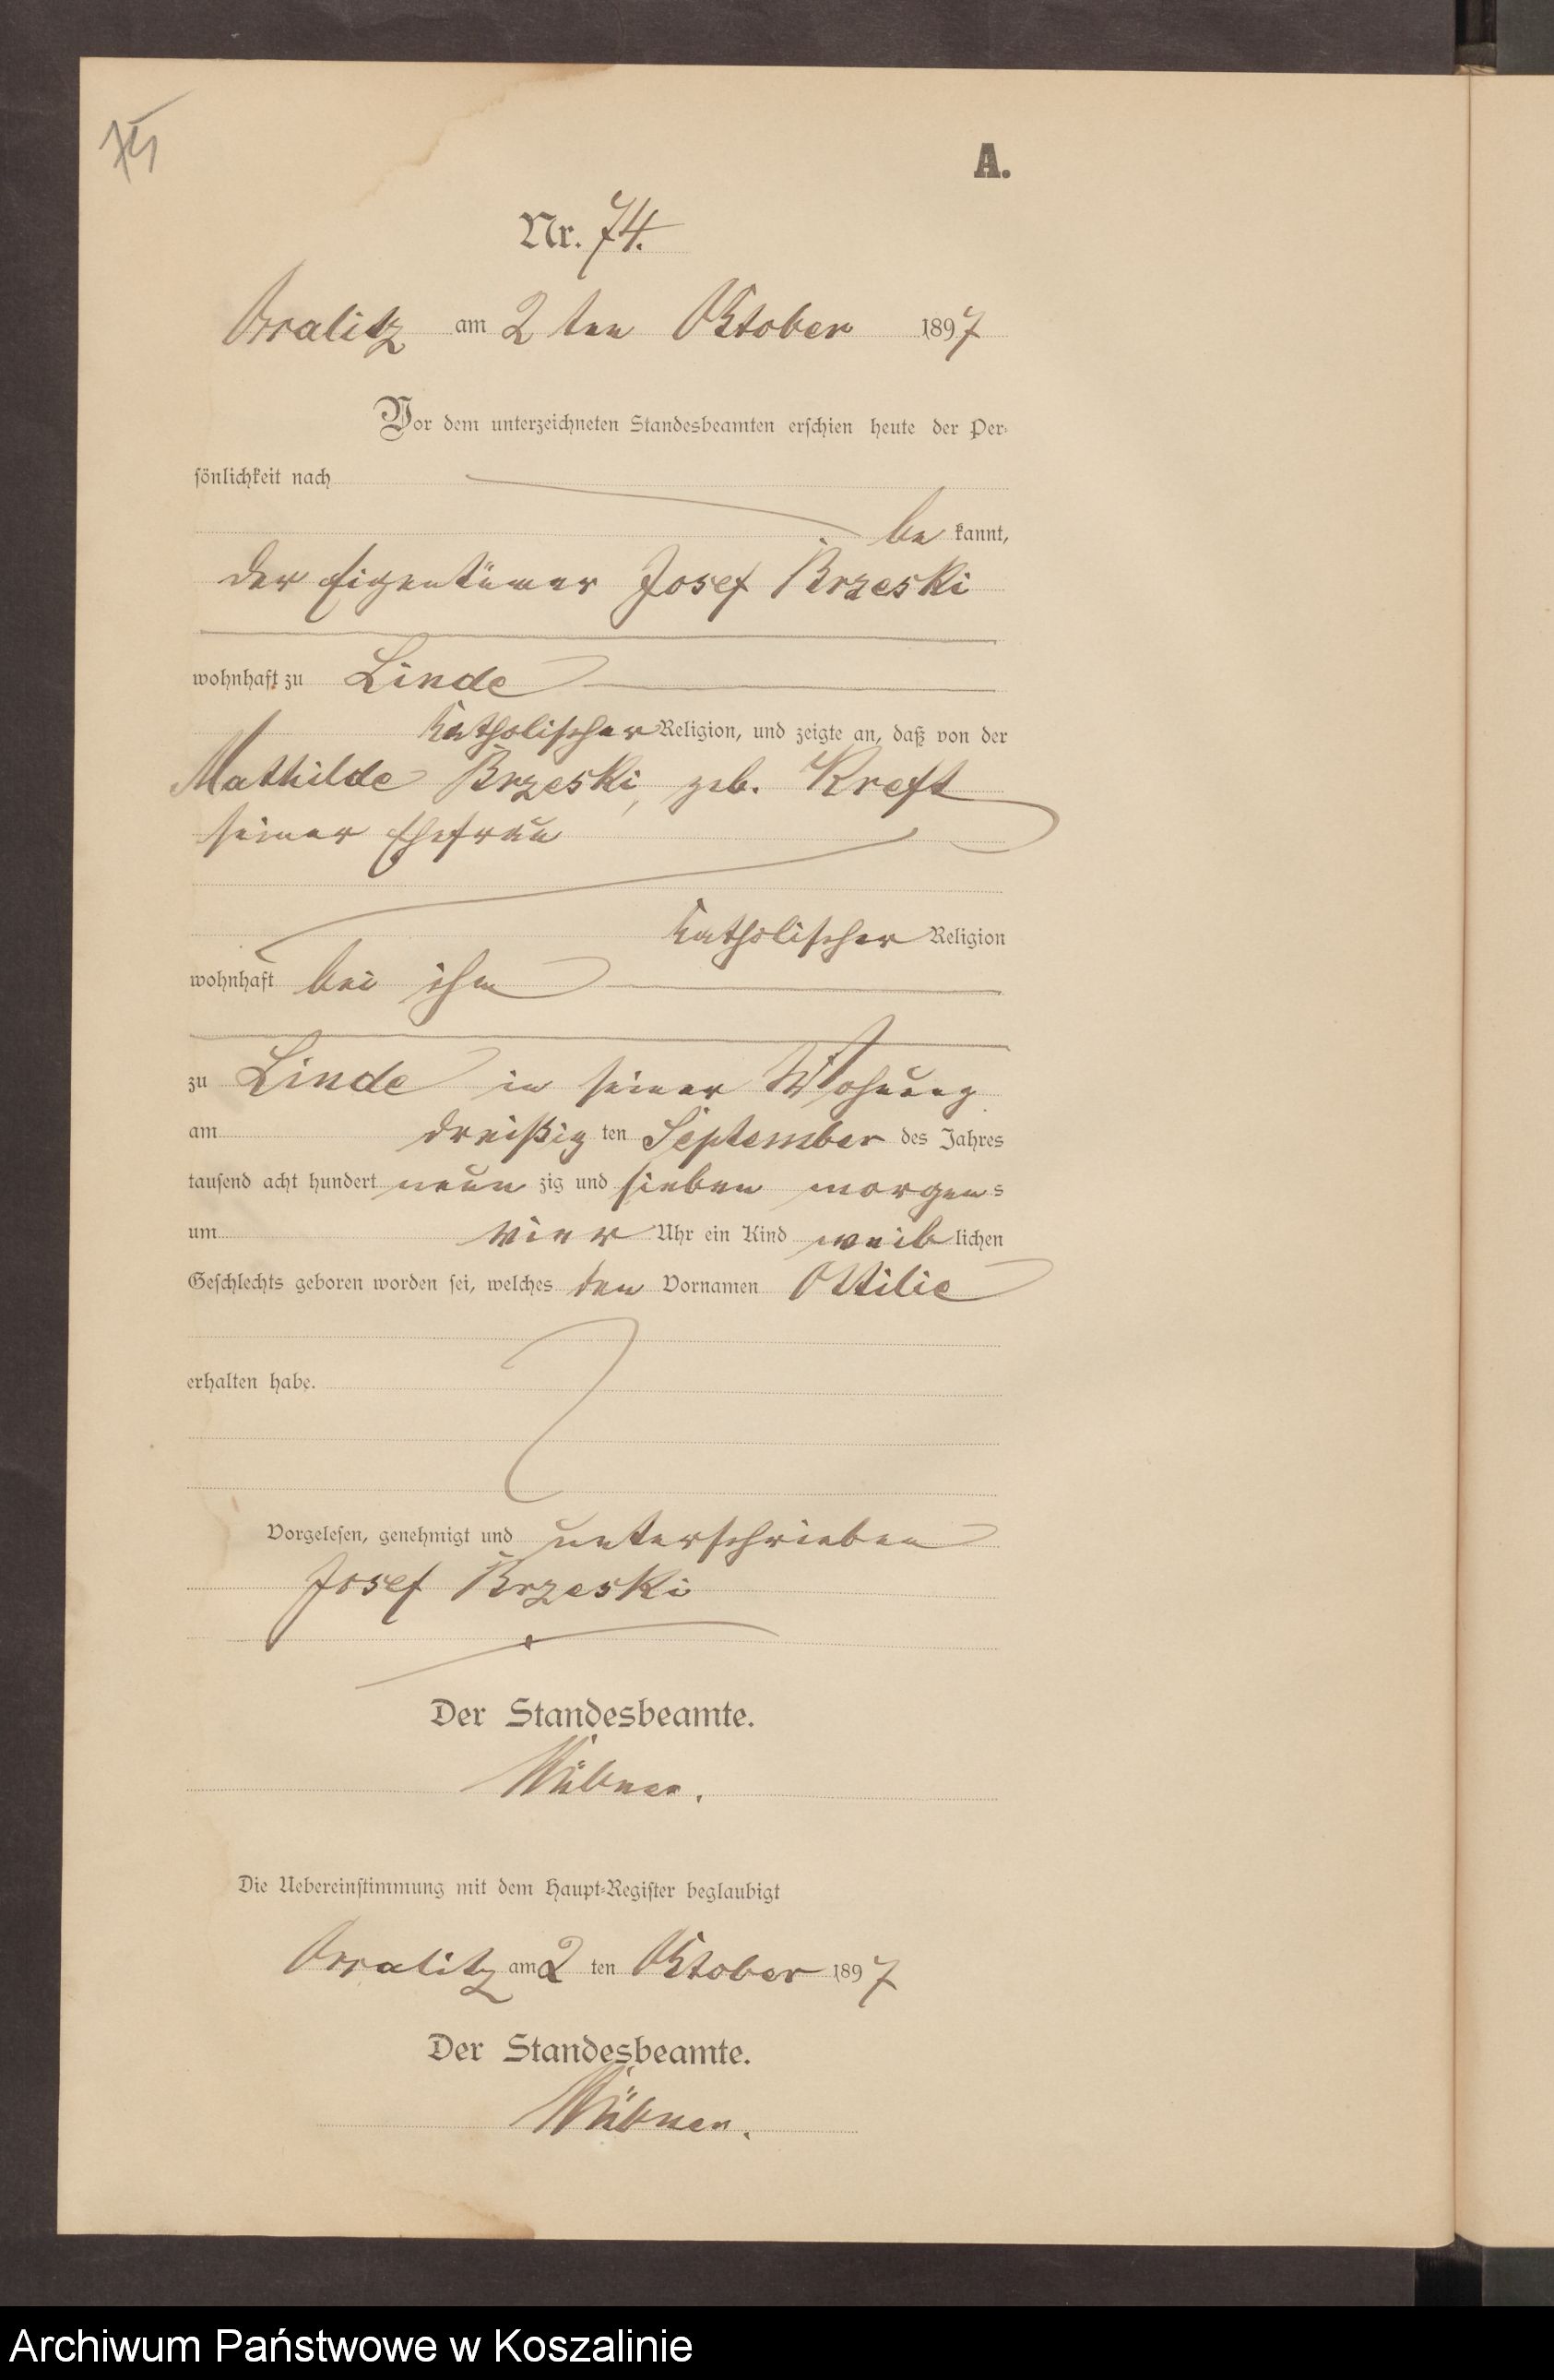 75
A.
Nr. 74.
Orralitz am 2 ten Oktober 1897
Vor dem unterzeichneten Standesbeamten erschien heute der Per-
sönlichkeit nach
be kannt,
der Eigentümer Josef Brzeski
wohnhaft zu Linde
katholischer Religion, und zeigte an, daß von der
Mathilde Brzeski, geb. Kreft
seiner Ehefrau
katholischer Religion
wohnhaft bei ihm
zu Linde in seiner Wohnung
am dreißig ten September des Jahres
tausend acht hundert neun zig und sieben morgens
um vier Uhr ein Kind weib lichen
Geschlechts geboren worden sei, welches den Vornamen Ottilie
erhalten habe.
Vorgelesen, genehmigt und unterschrieben
Josef Brzeski
Der Standesbeamte.
Die Uebereinstimmung mit dem Haupt-Register beglaubigt
Orralitz am 2 ten Oktober 1897
Der Standesbeamte.
Archiwum Państwowe w Koszalinie